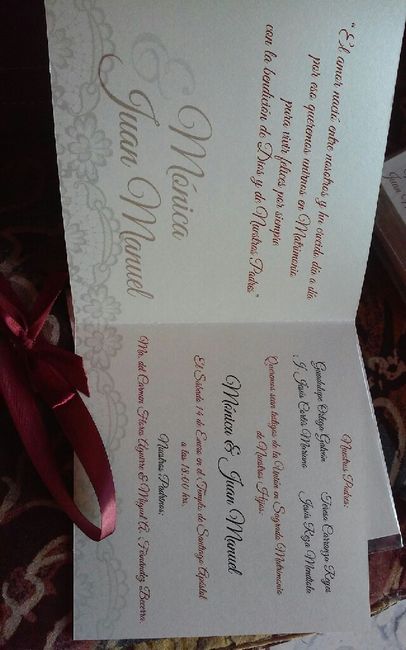 “El amor nació entre nosotros y ha crecido día a día
por eso queremos unirnos en Matrimonio
para vivir felices por siempre
con la bendición de Dios y de Nuestros Padres”
Mónica
&
Juan Manuel
Nuestros Padres:
Guadalupe Ortega
J. Jesús Cortes Moreno
Teresa Carranza Reyes
Jesús Raya Mendiola
Queremos sean testigos de la Unión en Sagrado Matrimonio
de Nuestros Hijos:
Mónica & Juan Manuel
El Sábado 14 de Enero en el Templo de Santiago Apóstol
a las 18:00 hrs.
Nuestros Padrinos:
Ma. del Carmen Flores Aguirre & Miguel A. Fernández Becerra.